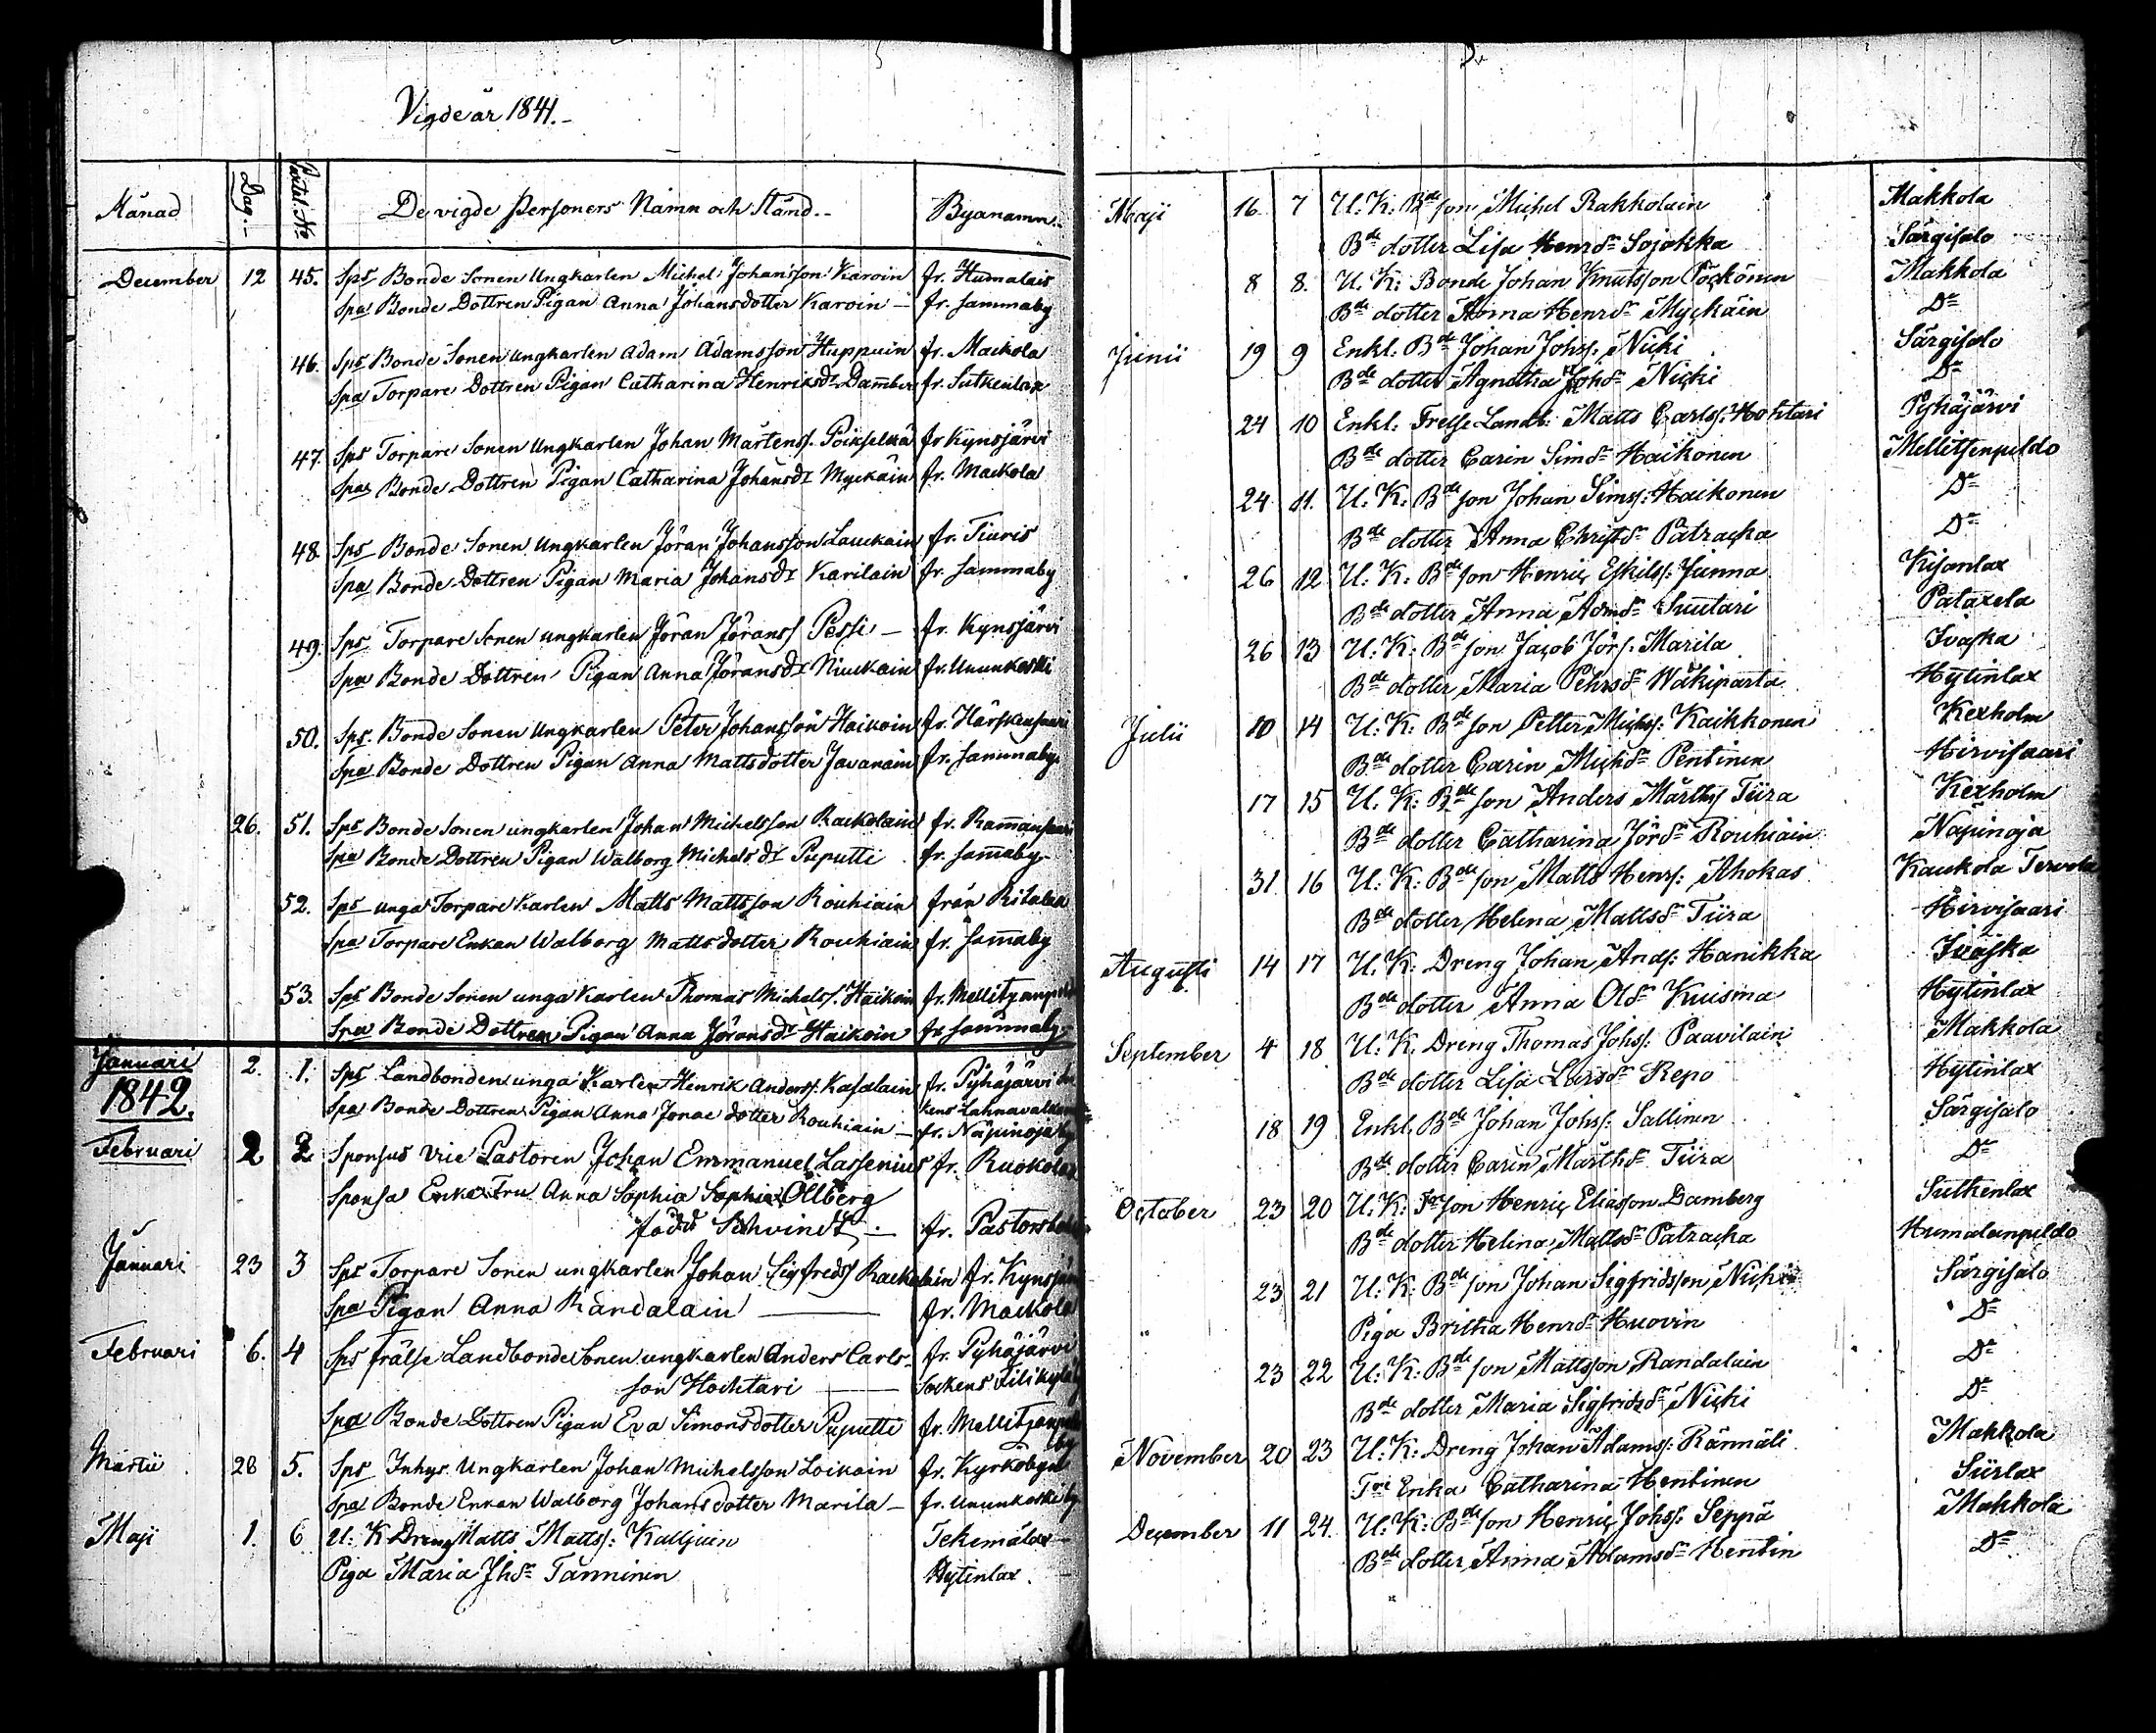 Vigde år 1841.-
Månad Dag.- Contul. No De vigde Personers Namn och Stånd.- Byanamn.-
December 12 45. Sps Bonde Sonen Ungkarlen Michel Johansson Karoin fr. Humalais
Spa Bonde Dottren Pigan Anna Johansdotter Karoin — fr. Sammaby
46. Sps Bonde Sonen ungkarlen Adam Adamsson Huppuin fr. Mackola
Spa Torpare Dottren Pigan Catharina Henriksdr Damber fr. Sutkenlax
47. Sps Torpare Sonen Ungkarlen Johan Mårtenss. Poikselkä fr Kynsjärvi
Spa Bonde Dottren Pigan Catharina Johansdr Myckäin fr. Mackola
48. Sps Bonde Sonen Ungkarlen Jöran Johansson Lauckain fr. Tiuris
Spa Bonde Dottren Pigan Maria Johansdr Karilain fr. Sammaby
49. Sps Torpare Sonen ungkarlen Jöran Jöranss Pessi — fr. Kynsjärvi
Spa Bonde Dottren Pigan Anna Jöransdr Niuckain fr. Ununkoski
50. Sps. Bonde Sonen Ungkarlen Peter Johansson Haikoin fr. Härskensaari
Spa Bonde Dottren Pigan Anna Mattsdotter Javanain fr. Sammaby.
26. 51. Sps Bonde Sonen ungkarlen Johan Michelsson Rackolain fr. Ramansaari
Spa Bonde Dottren Pigan Walborg Michelsdr Puputti fr. Samaby.
52. Sps unga Torpare Karlen Matts Mattsson Rouhiain från Ritalax
Spa Torpare Enkan Walborg Mattsdotter Rouhiain fr. Samaby
53. Sps Bonde Sonen unga Karlen Thomas Michelss. Haikoin fr. Mellitzanp
Spa Bonde Dottren Pigan Anna Jöransdr Haikoin fr. Sammaby.
Januari 2. 1. Sps Landbonden unga Karlen Henrik Anderss. Kasalain fr. Pyhäjärvi So
1842. Spa Bonde Dottren Pigan Anna Jonae dotter Rouhiain — kens Lahnavalkam
fr. Näpinoja by
Februari 2 2 Sponsus Vice Pastoren Johan Emmanuel Lassenius fr. Ruokolax
Sponsa Enke Fru Anna Sophia Sophia Ollberg
född Schvindt — fr. Pastorsb
Januari 23 3 Sps Torpare Sonen ungkarlen Johan Sigfreds Rackolain fr. Kynsjär
Spa Pigan Anna Randalain — fr. Mackola
Februari 6. 4 Sps frälse Landbonde Sonen ungkarlen Anders Carls- fr. Pyhäjärvi
son Hochtari — Sockens Lilikylä
Spa Bonde Dottren Pigan Eva Simonsdotter Puputti fr. Mellitzanp
by
Martii 28 5. Sps Inhys. Ungkarlen Johan Michelsson Loikain fr. Kyrkobyn
Spa Bonde Enkan Walborg Johansdotter Marila — fr. Ununkoski by
Maji 1. 6 U: K Dreng Matts Matss: Kalljuin Tekemälax
Piga Maria Jhsdr Tanninen Hytinlax.
Maji 16 7 U: K: Bde son Michel Rakkolain Makkola
Bde dotter Lisa Henrdr Sojakka Särgisalo
8 8. U. K: Bonde Johan Knutsson Pöckönen Makkola
Bde dotter Anna Henrdr Myckäin Do
Junii 19 9 Enkl: Bde Johan Johss: Nicki Särgisalo
Bde dotter Agnetha Johdr Nicki Do
24 10 Enkl: Frelse Landb: Matts Carlss: Hohtari Pyhäjärvi
Bde dotter Carin Simdr Haikonen Mellitsenpeldo
24 11. U: K: Bde son Johan Simss: Haikonen Do
Bde dotter Anna Christdr Patracka Do
26 12 U. K: Bde son Henric Eskilss: Junna Kisanlax
Bde dotter Anna Admdr Suutari Pataxela
26 13 U. K: Bde son Jacob Jörs: Marila Ivaska
Bde dotter Maria Pehrsdr Wäkiparta Hytinlax
Julii 10 14 U: K: Bde son Petter Michss: Kaikkonen Kexholm
Bde dotter Carin Michdr Pentinen Hirvisaari
17 15 U: K: Bde son Anders Mårthss Tiira Kexholm
Bde dotter Catharina Jördr Rouhiain Näpinoja
31 16 U: K: Bde son Matts Henrs: Ahokas Kaukola Tervola
Bde dotter Helena Mattsdr Tiira Hirvisaari
Augusti 14 17 U: K: Dreng Johan Ands: Hanikka Ivaska
Bde dotter Anna Oldr Kuisma Hytinlax
September 4 18 U: K. Dreng Thomas Johss: Paavilain Makkola
Bde dotter Lisa Larsdr Repo Hytinlax
18 19 Enkl. Bde Johan Johss: Sallinen Särgisalo
Bde dotter Carin Mårthdr Tiira Do
October 23 20 U: K: Tr son Henric Eliasson Damberg Sutkenlax
Bde dotter Helena Mattsdr Patracka Humalanpeldo
23 21 U: K: Bde son Johan Sigfridsson Nicki Särgisalo
Piga Britha Henrdr Huovin Do
23 22 U: K: Bde son Mattsson Randalain Do
Bde dotter Maria Sigfridsdr Nicki Do
November 20 23 U: K: Dreng Johan Adams: Rännäli Makkola
Tre Enka Catharina Hentinen Siirlax
December 11 24. U: K: Bde son Henric Johss: Seppä Makkola
Bde dotter Anna Adamsdr Hentin Do